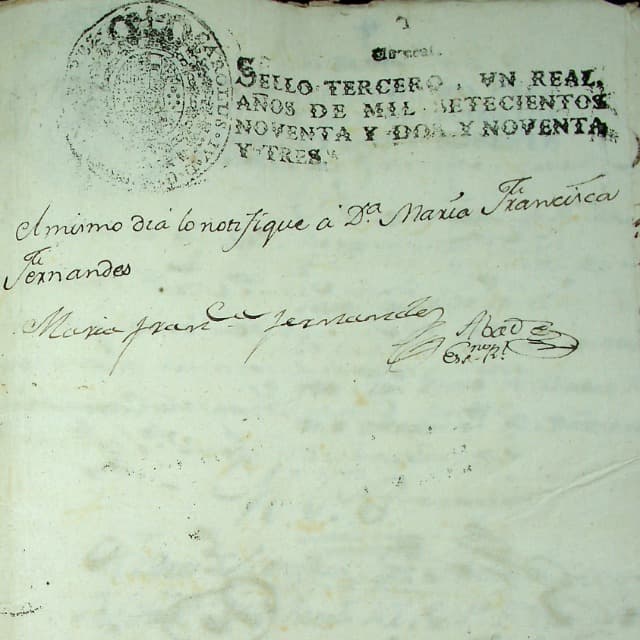 SELLO TERCERO, VN REAL,
AÑOS DE MIL SETECIENTOS
NOVENTA Y DOS, Y NOVENTA
Y TRES.
El mismo dia lo notifique a D.ª María Francisca
Fernandes
Maria Fran.ca Fernandes
Abad